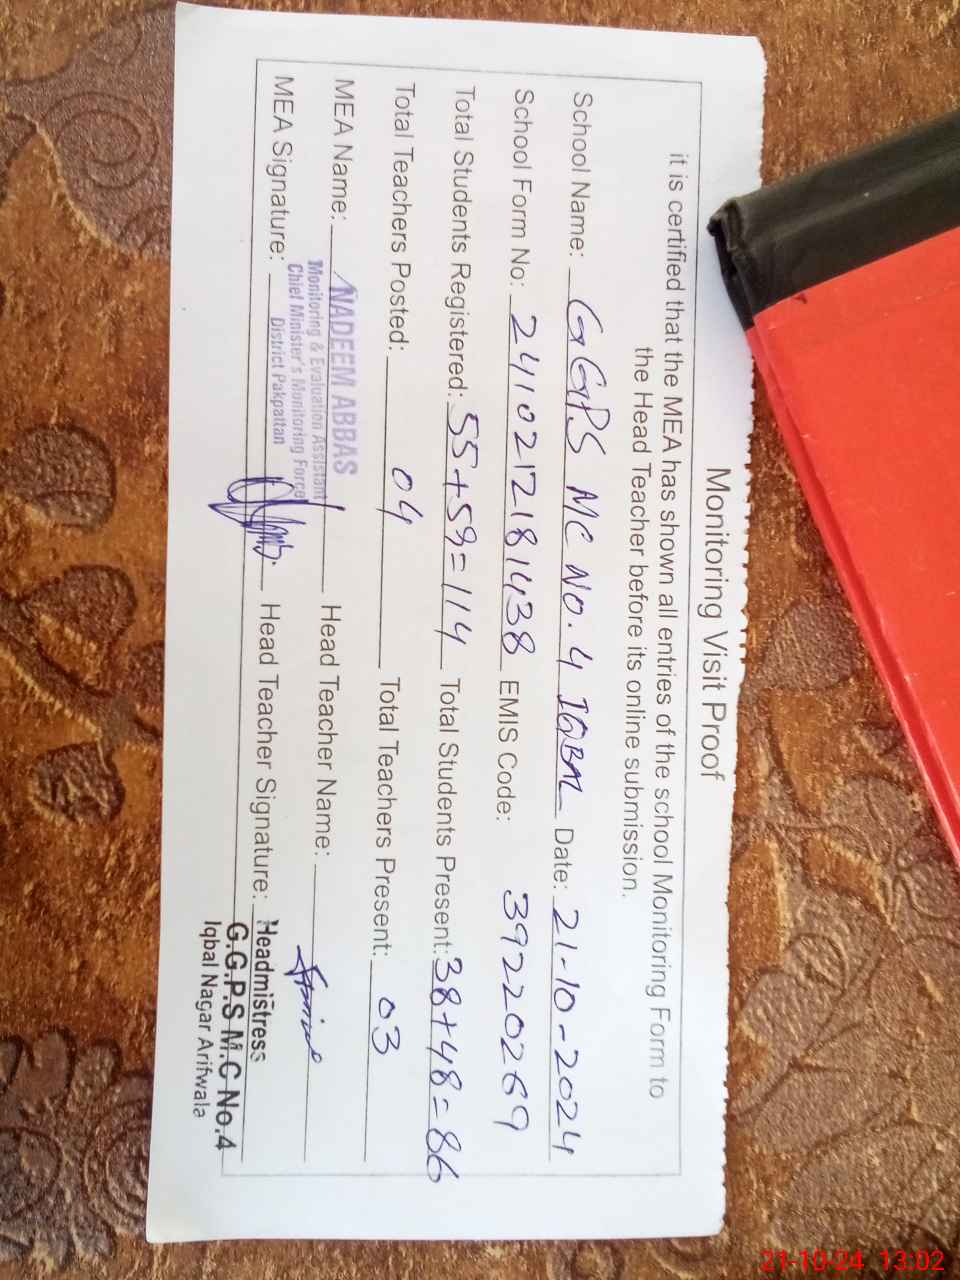 Monitoring Visit Proof
it is certified that the MEA has shown all entries of the school Monitoring Form to
the Head Teacher before its online submission.
School Name: GGPS MC NO. 4 IQBAL Date: 21-10-2024
School Form No: 2410217218 1438 EMIS Code: 39220269
Total Students Registered: 55+59=114 Total Students Present: 38+48=86
Total Teachers Posted: 04 Total Teachers Present: 03
MEA Name: NADEEM ABBAS Head Teacher Name:
Monitoring & Evaluation Assistant
Chief Minister's Monitoring Force
District Pakpattan
MEA Signature: Head Teacher Signature: Headmistress
G.G.P.S M.C No.4
Iqbal Nagar Arifwala
21-10-24 13:02